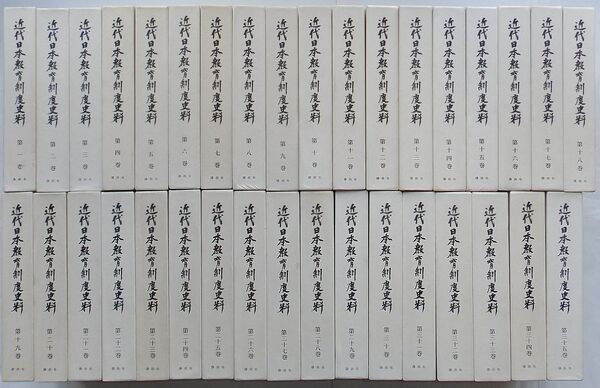 近代日本教育制度史料 第一巻 講談社
近代日本教育制度史料 第二巻 講談社
近代日本教育制度史料 第三巻 講談社
近代日本教育制度史料 第四巻 講談社
近代日本教育制度史料 第五巻 講談社
近代日本教育制度史料 第六巻 講談社
近代日本教育制度史料 第七巻 講談社
近代日本教育制度史料 第八巻 講談社
近代日本教育制度史料 第九巻 講談社
近代日本教育制度史料 第十巻 講談社
近代日本教育制度史料 第十一巻 講談社
近代日本教育制度史料 第十二巻 講談社
近代日本教育制度史料 第十三巻 講談社
近代日本教育制度史料 第十四巻 講談社
近代日本教育制度史料 第十五巻 講談社
近代日本教育制度史料 第十六巻 講談社
近代日本教育制度史料 第十七巻 講談社
近代日本教育制度史料 第十八巻 講談社
近代日本教育制度史料 第十九巻 講談社
近代日本教育制度史料 第二十巻 講談社
近代日本教育制度史料 第二十一巻 講談社
近代日本教育制度史料 第二十二巻 講談社
近代日本教育制度史料 第二十三巻 講談社
近代日本教育制度史料 第二十四巻 講談社
近代日本教育制度史料 第二十五巻 講談社
近代日本教育制度史料 第二十六巻 講談社
近代日本教育制度史料 第二十七巻 講談社
近代日本教育制度史料 第二十八巻 講談社
近代日本教育制度史料 第二十九巻 講談社
近代日本教育制度史料 第三十巻 講談社
近代日本教育制度史料 第三十一巻 講談社
近代日本教育制度史料 第三十二巻 講談社
近代日本教育制度史料 第三十三巻 講談社
近代日本教育制度史料 第三十四巻 講談社
近代日本教育制度史料 第三十五巻 講談社